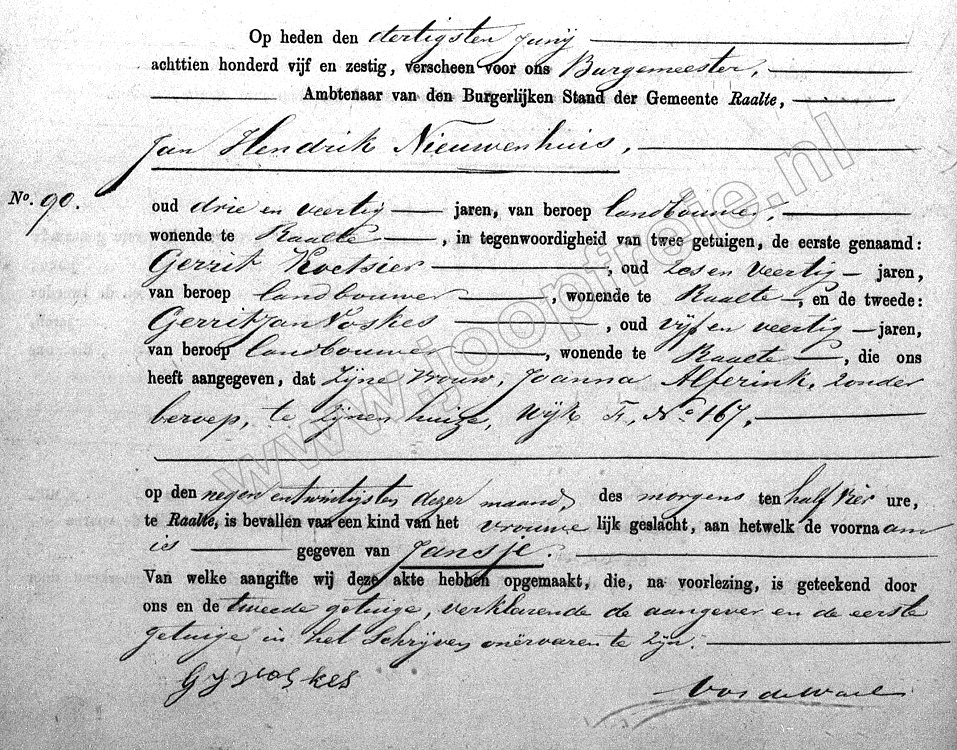 Op heden den dertigsten Junij
achttien honderd vijf en zestig, verscheen voor ons Burgemeester,
Ambtenaar van den Burgerlijken Stand der Gemeente Raalte,
Jan Hendrik Nieuwenhuis,
No. 90.
oud drie en veertig jaren, van beroep landbouwer,
wonende te Raalte, in tegenwoordigheid van twee getuigen, de eerste genaamd:
Gerrit Koetsier, oud Zes en Veertig jaren,
van beroep landbouwer, wonende te Raalte, en de tweede:
Gerrit Jan Voskes, oud vijf en veertig jaren,
van beroep landbouwer, wonende te Raalte, die ons
heeft aangegeven, dat Zijne Vrouw, Joanna Alferink, Zonder
beroep, te Zijnen huize, Wijk F, No 167,
op den negen entwintigsten dezer maand, des morgens ten half vier ure,
te Raalte, is bevallen van een kind van het vrouwe lijk geslacht, aan hetwelk de voorna am
is gegeven van Jansje.
Van welke aangifte wij deze akte hebben opgemaakt, die, na voorlezing, is geteekend door
ons en de tweede getuige, verklarende de aangever en de eerste
getuige in het Schrijven onërvaren te Zijn.
GJ Voskes
Vos de Wael
www.jooptreie.nl